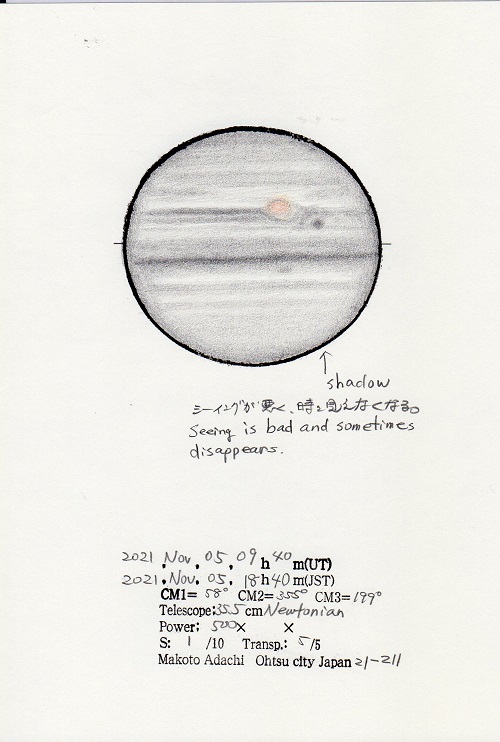 shadow
シーイングが悪く、時々見えなくなる。
Seeing is bad and sometimes
disappears.
2021, Nov, 05, 09h 40m(UT)
2021, Nov. 05, 18h 40m(JST)
CM1= 58° CM2= 355° CM3= 199°
Telescope: 35.5 cm Newtonian
Power: 500× ×
S: 1 /10 Transp.: 5/5
Makoto Adachi Ohtsu city Japan 21-211